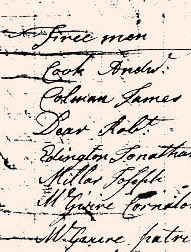 Free men
Cook Andw.
Colman James
Dear Robt.
Edington Jonathan
Millar Joseph
McGuire Cornelos
McGuire Patric